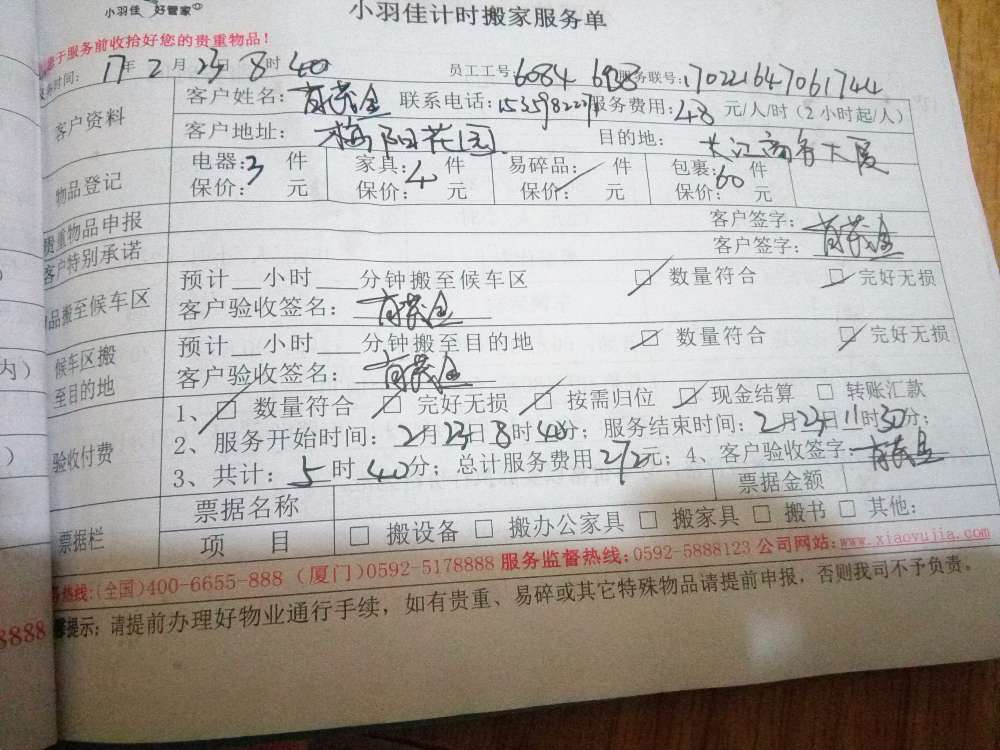 小羽佳 好管家
小羽佳计时搬家服务单
于服务前收拾好您的贵重物品!
务时间: 17年2月23日8时40 员工工号: 6084 6928 服务联号: 170221647061744
客户资料
客户姓名: 联系电话: 服务费用: 48 元/人/时(2小时起/人)
客户地址: 梅阳花园 目的地: 大江商务大厦
物品登记
电器: 3 件 家具: 4 件 易碎品: 件 包裹: 60 件
保价: 元 保价: 元 保价: 元 保价: 元
贵重物品申报 客户签字:
客户特别承诺 客户签字:
品搬至候车区
预计__小时___分钟搬至候车区 □ 数量符合 □ 完好无损
客户验收签名:
候车区搬
至目的地
预计__小时___分钟搬至目的地 □ 数量符合 □ 完好无损
客户验收签名:
验收付费
1、□ 数量符合 □ 完好无损 □ 按需归位 □ 现金结算 □ 转账汇款
2、服务开始时间: 2月23日8时40分; 服务结束时间: 2月23日11时30分;
3、共计: 5时40分; 总计服务费用272元; 4、客户验收签字:
票据栏
票据名称 票据金额
项 目 □ 搬设备 □ 搬办公家具 □ 搬家具 □ 搬书 □ 其他:
务热线:(全国)400-6655-888 (厦门)0592-5178888 服务监督热线:0592-5888123 公司网站:www.xiaoyujia.com
提示: 请提前办理好物业通行手续, 如有贵重、易碎或其它特殊物品请提前申报, 否则我司不予负责。
内)
)
8888